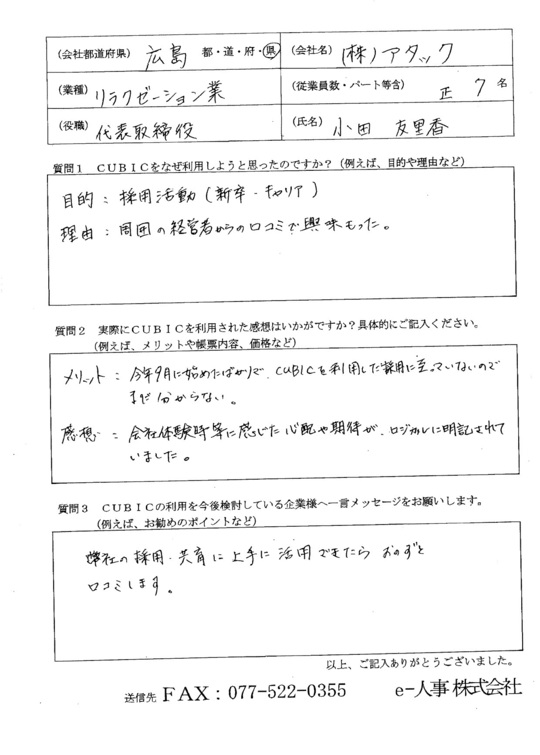 (会社都道府県) 広島 都・道・府・県
(会社名) (株)アタック
(業種) リラクゼーション業
(従業員数・パート等含) 正 7 名
(役職) 代表取締役
(氏名) 小田 友里香
質問1 CUBICをなぜ利用しようと思ったのですか?(例えば、目的や理由など)
目的: 採用活動(新卒・キャリア)
理由: 周囲の経営者からの口コミで興味もった。
質問2 実際にCUBICを利用された感想はいかがですか?具体的にご記入ください。
(例えば、メリットや帳票内容、価格など)
メリット: 今年9月に始めたばかりで、CUBICを利用した採用に至っていないので
まだ分からない。
感想: 会社体験時等に感じた心配や期待が、ロジカルに明記されて
いました。
質問3 CUBICの利用を今後検討している企業様へ一言メッセージをお願いします。
(例えば、お勧めのポイントなど)
弊社の採用・共育に上手に活用できたら おのずと
口コミします。
以上、ご記入ありがとうございました。
送信先 FAX:077-522-0355 e-人事株式会社